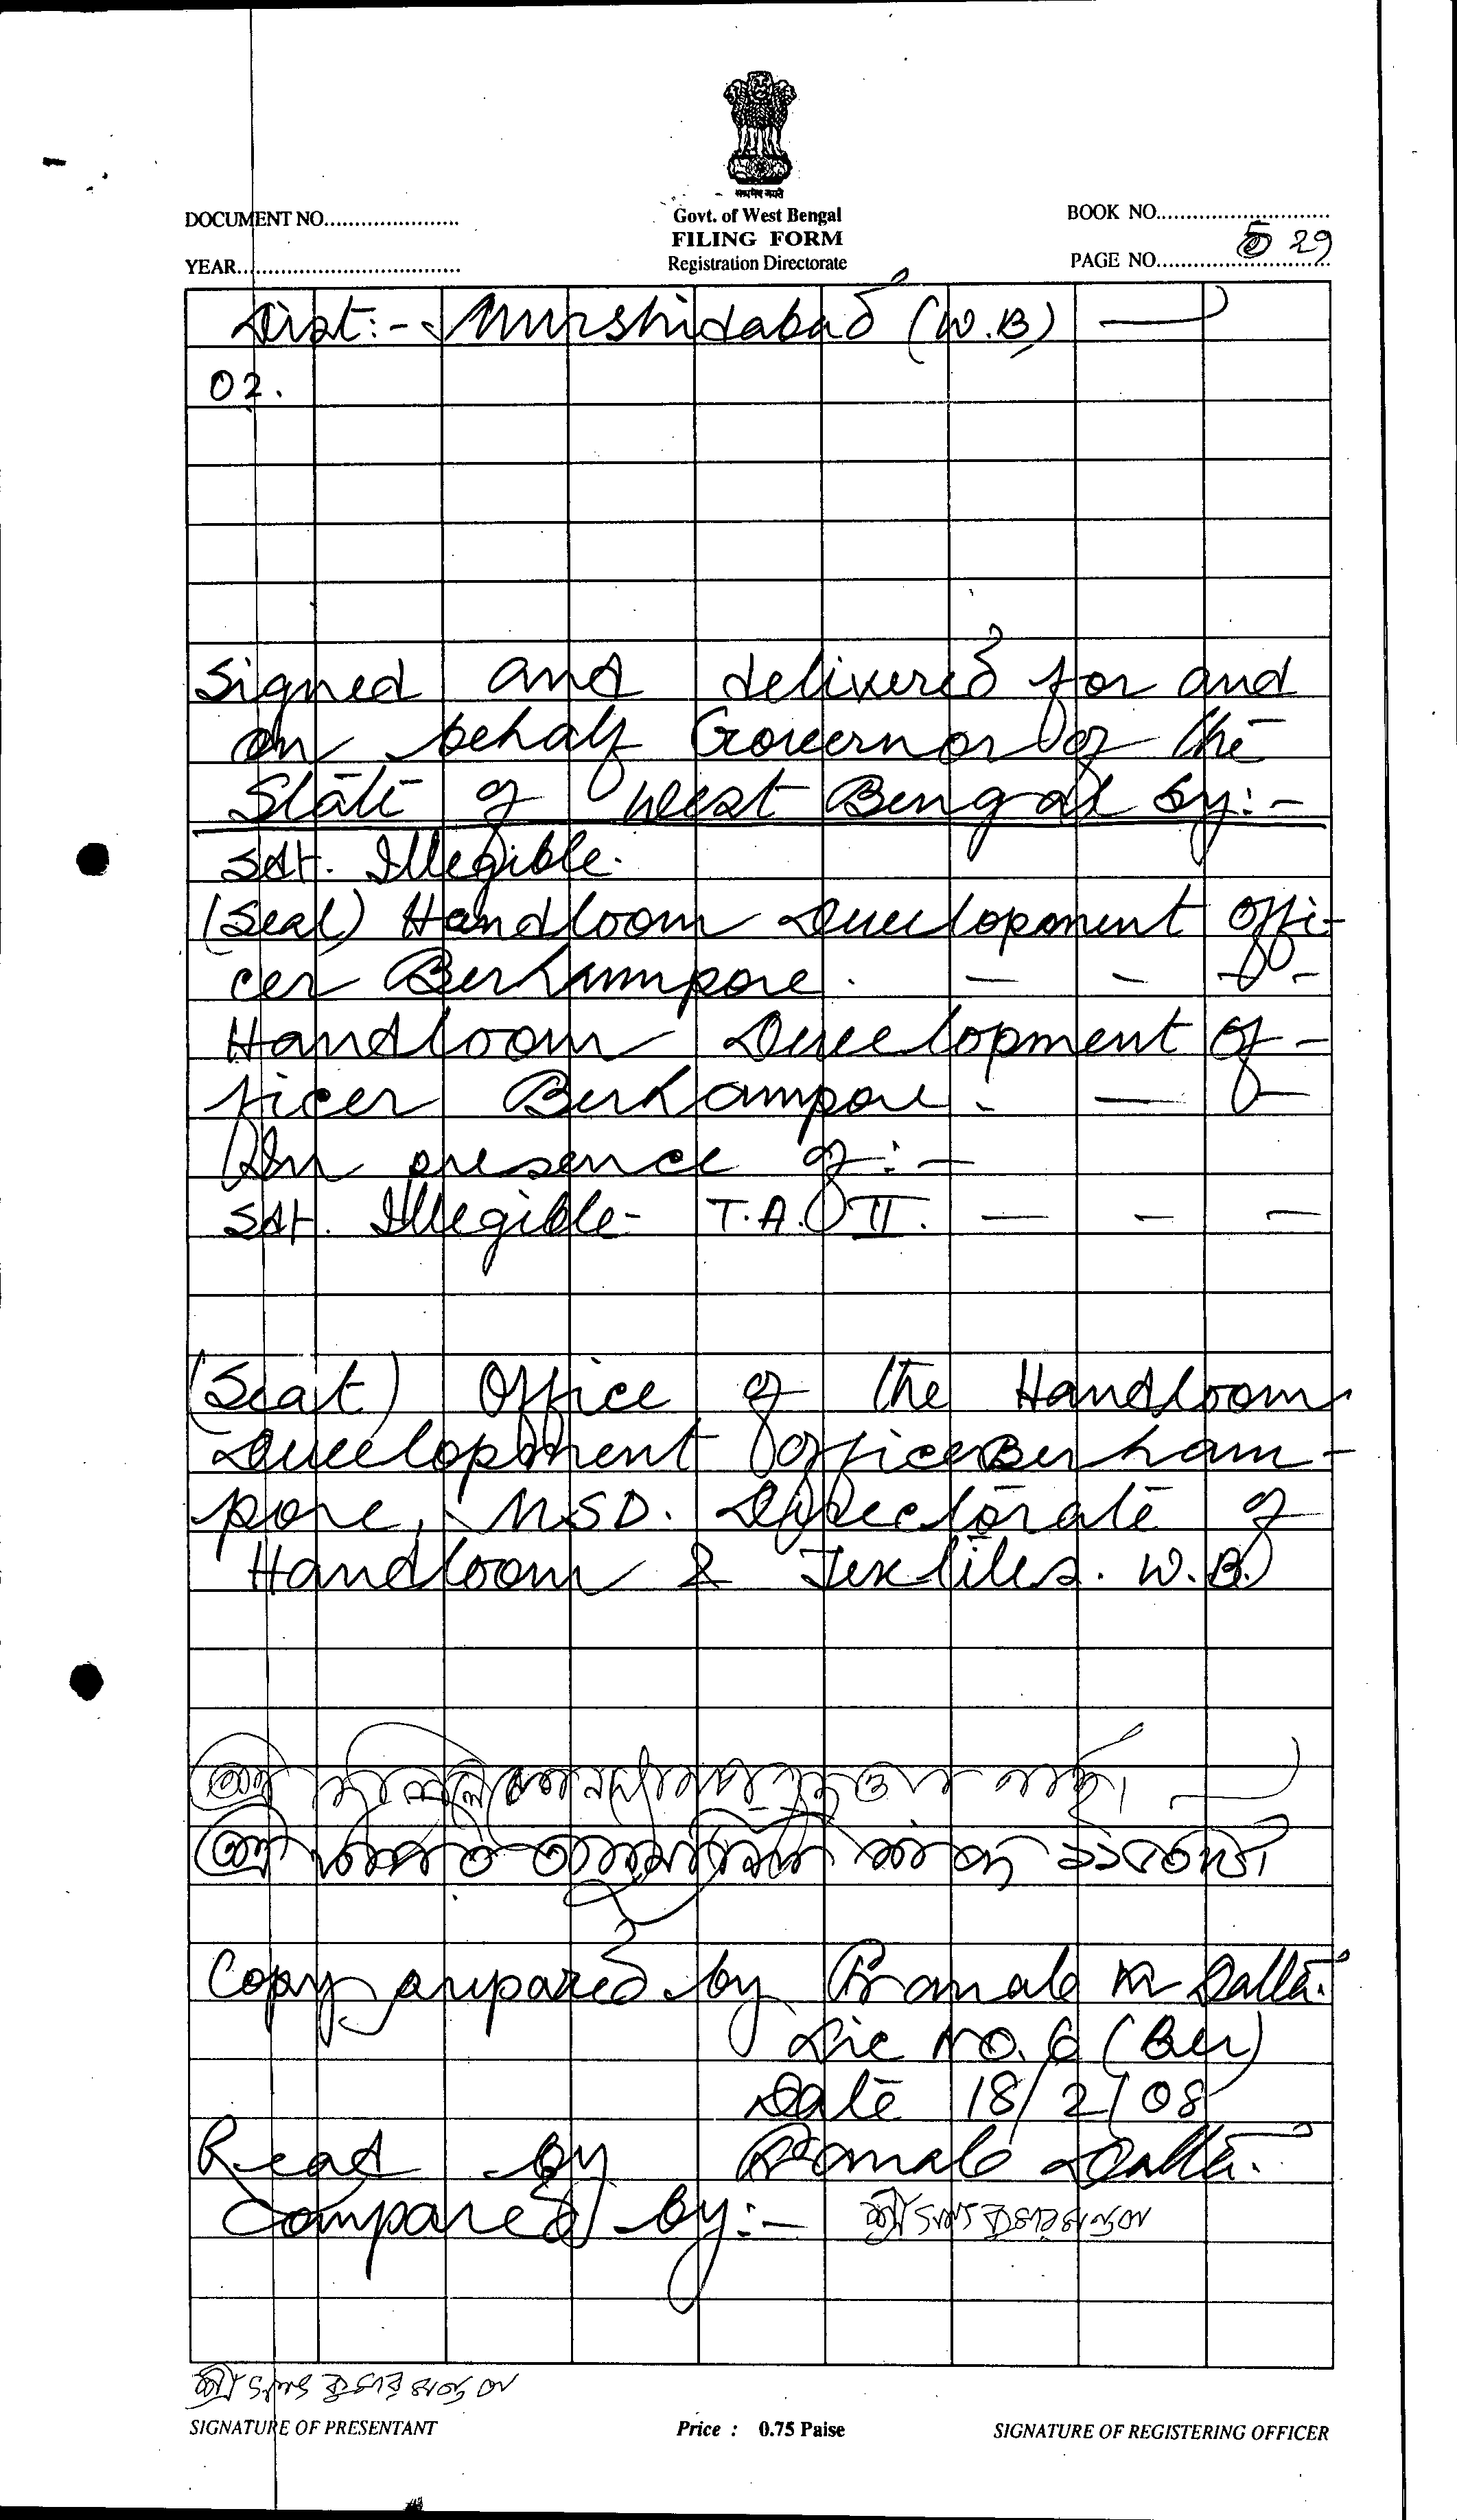 सत्यमेव जयते
Govt. of West Bengal
FILING FORM
Registration Directorate
DOCUMENT NO.
YEAR
BOOK NO.
PAGE NO. 29
Dist:- Murshidabad (W.B)
02.
Signed and delivered for and
on behalf Governor of the
State of West Bengal by:-
Sd/-. Illegible.
(Seal) Handloom Development Offi-
cer Berhampore. - - -
Handloom Development Of-
ficer Berhampore. - -
In presence of:-
Sd/-. Illegible- T.A. II. - - -
(Seal) Office of the Handloom
Development Officer Berham-
pore, MSD. Directorate of
Handloom & Textiles. W.B.
Copy prepared by Kr Datta.
Lic No. 6 (Ber)
Date 18/2/08
Read by Datta.
Compared by:- শ্রী কুমার মণ্ডল
শ্রী কুমার মণ্ডল
SIGNATURE OF PRESENTANT
Price : 0.75 Paise
SIGNATURE OF REGISTERING OFFICER